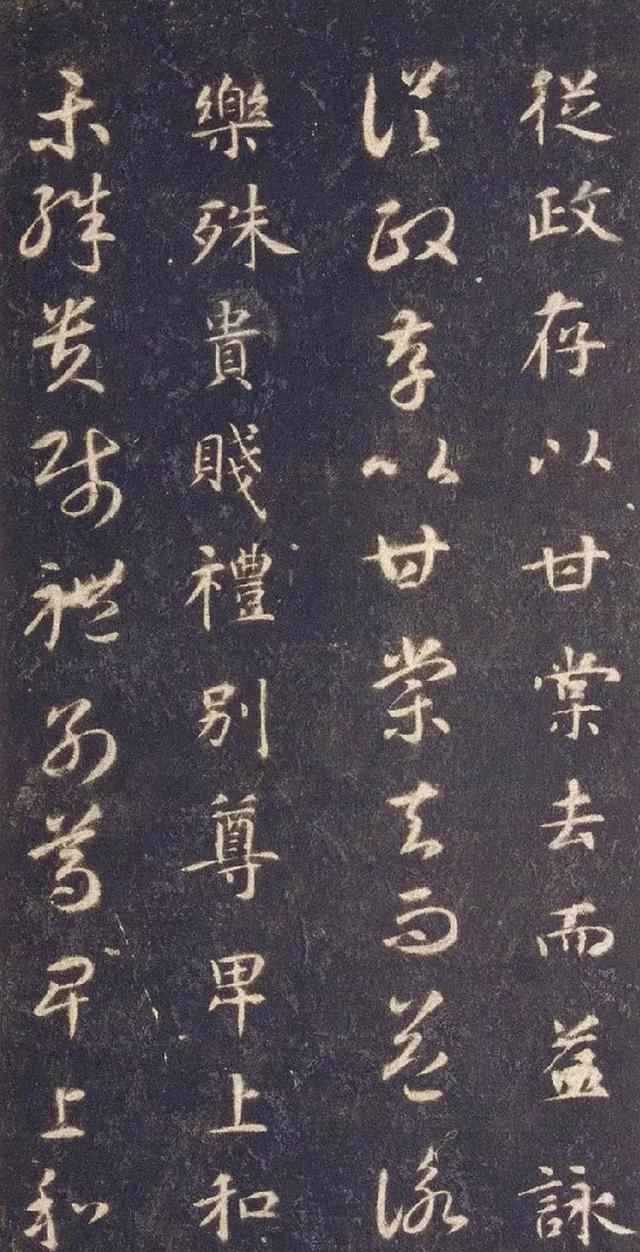 從政存以甘棠去而益詠
從政存以甘棠去而益詠
樂殊貴賤禮別尊卑上和
樂殊貴賤禮別尊卑上和